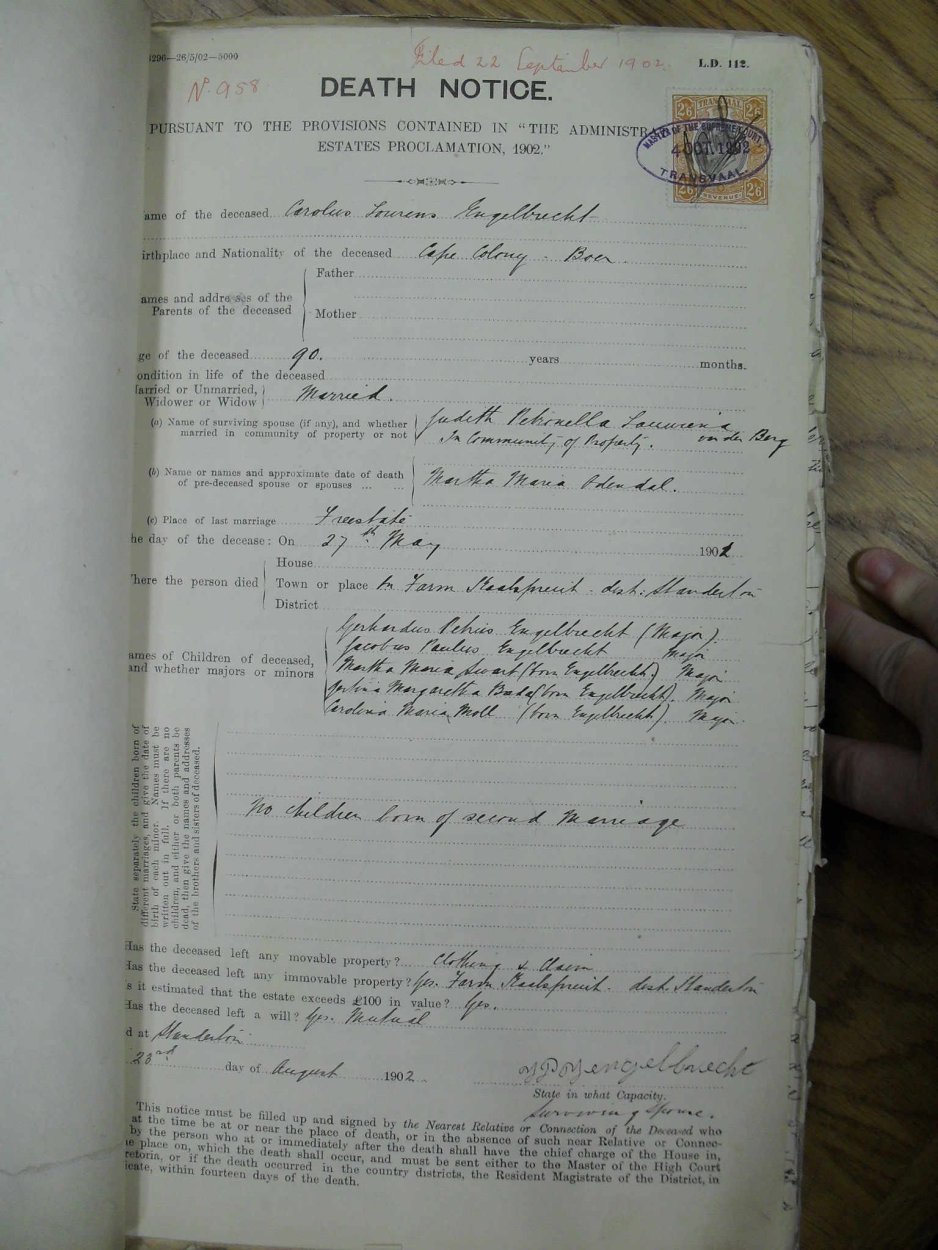 1296—26/5/02—5000
Filed 22 September 1902.
L.D. 112.
No 958
DEATH NOTICE.
TRANSVAAL
2/6 2/6
MASTER OF THE SUPREME COURT
4 OCT. 1902
TRANSVAAL.
2/6 REVENUE 2/6
PURSUANT TO THE PROVISIONS CONTAINED IN "THE ADMINISTRA
ESTATES PROCLAMATION, 1902."
ame of the deceased Carolus Lourens Engelbrecht
irthplace and Nationality of the deceased Cape Colony - Boer.
ames and addresses of the Parents of the deceased
Father
Mother
ge of the deceased 90. years months.
ondition in life of the deceased
arried or Unmarried, Widower or Widow Married.
(a) Name of surviving spouse (if any), and whether married in community of property or not
Judith Petronella Louwiena van der Berg
In Community of Property.
(b) Name or names and approximate date of death of pre-deceased spouse or spouses ... ...
Martha Maria Odendal.
(c) Place of last marriage Freestate
he day of the decease: On 27th May 1901
here the person died
House
Town or place On Farm Kaalspruit - dist: Standerton
District
ames of Children of deceased, and whether majors or minors
Gerhardus Petrus Engelbrecht (Major).
Jacobus Paulus Engelbrecht Major
Martha Maria Swart (born Engelbrecht) Major
Margaretha (born Engelbrecht). Major
Carolina Maria Moll (born Engelbrecht). Major.
State separately the children born of
different marriages, and give the date of
birth of each minor. Names must be
written out in full. If there are no
children, and either or both parents be
dead, then give the names and addresses
of the brothers and sisters of deceased.
No children born of second Marriage
Has the deceased left any movable property? Clothing & Claim
Has the deceased left any immovable property? Yes. Farm Kaalspruit. dist. Standerton
s it estimated that the estate exceeds £100 in value? Yes.
Has the deceased left a will? Yes. Mutual
d at Standerton
23rd day of August 1902.
engelbrecht
State in what Capacity.
Surviving Spouse.
This notice must be filled up and signed by the Nearest Relative or Connection of the Deceased who
at the time be at or near the place of death, or in the absence of such near Relative or Connec-
by the person who at or immediately after the death shall have the chief charge of the House in,
e place on, which the death shall occur, and must be sent either to the Master of the High Court
retoria, or if the death occurred in the country districts, the Resident Magistrate of the District, in
icate, within fourteen days of the death.